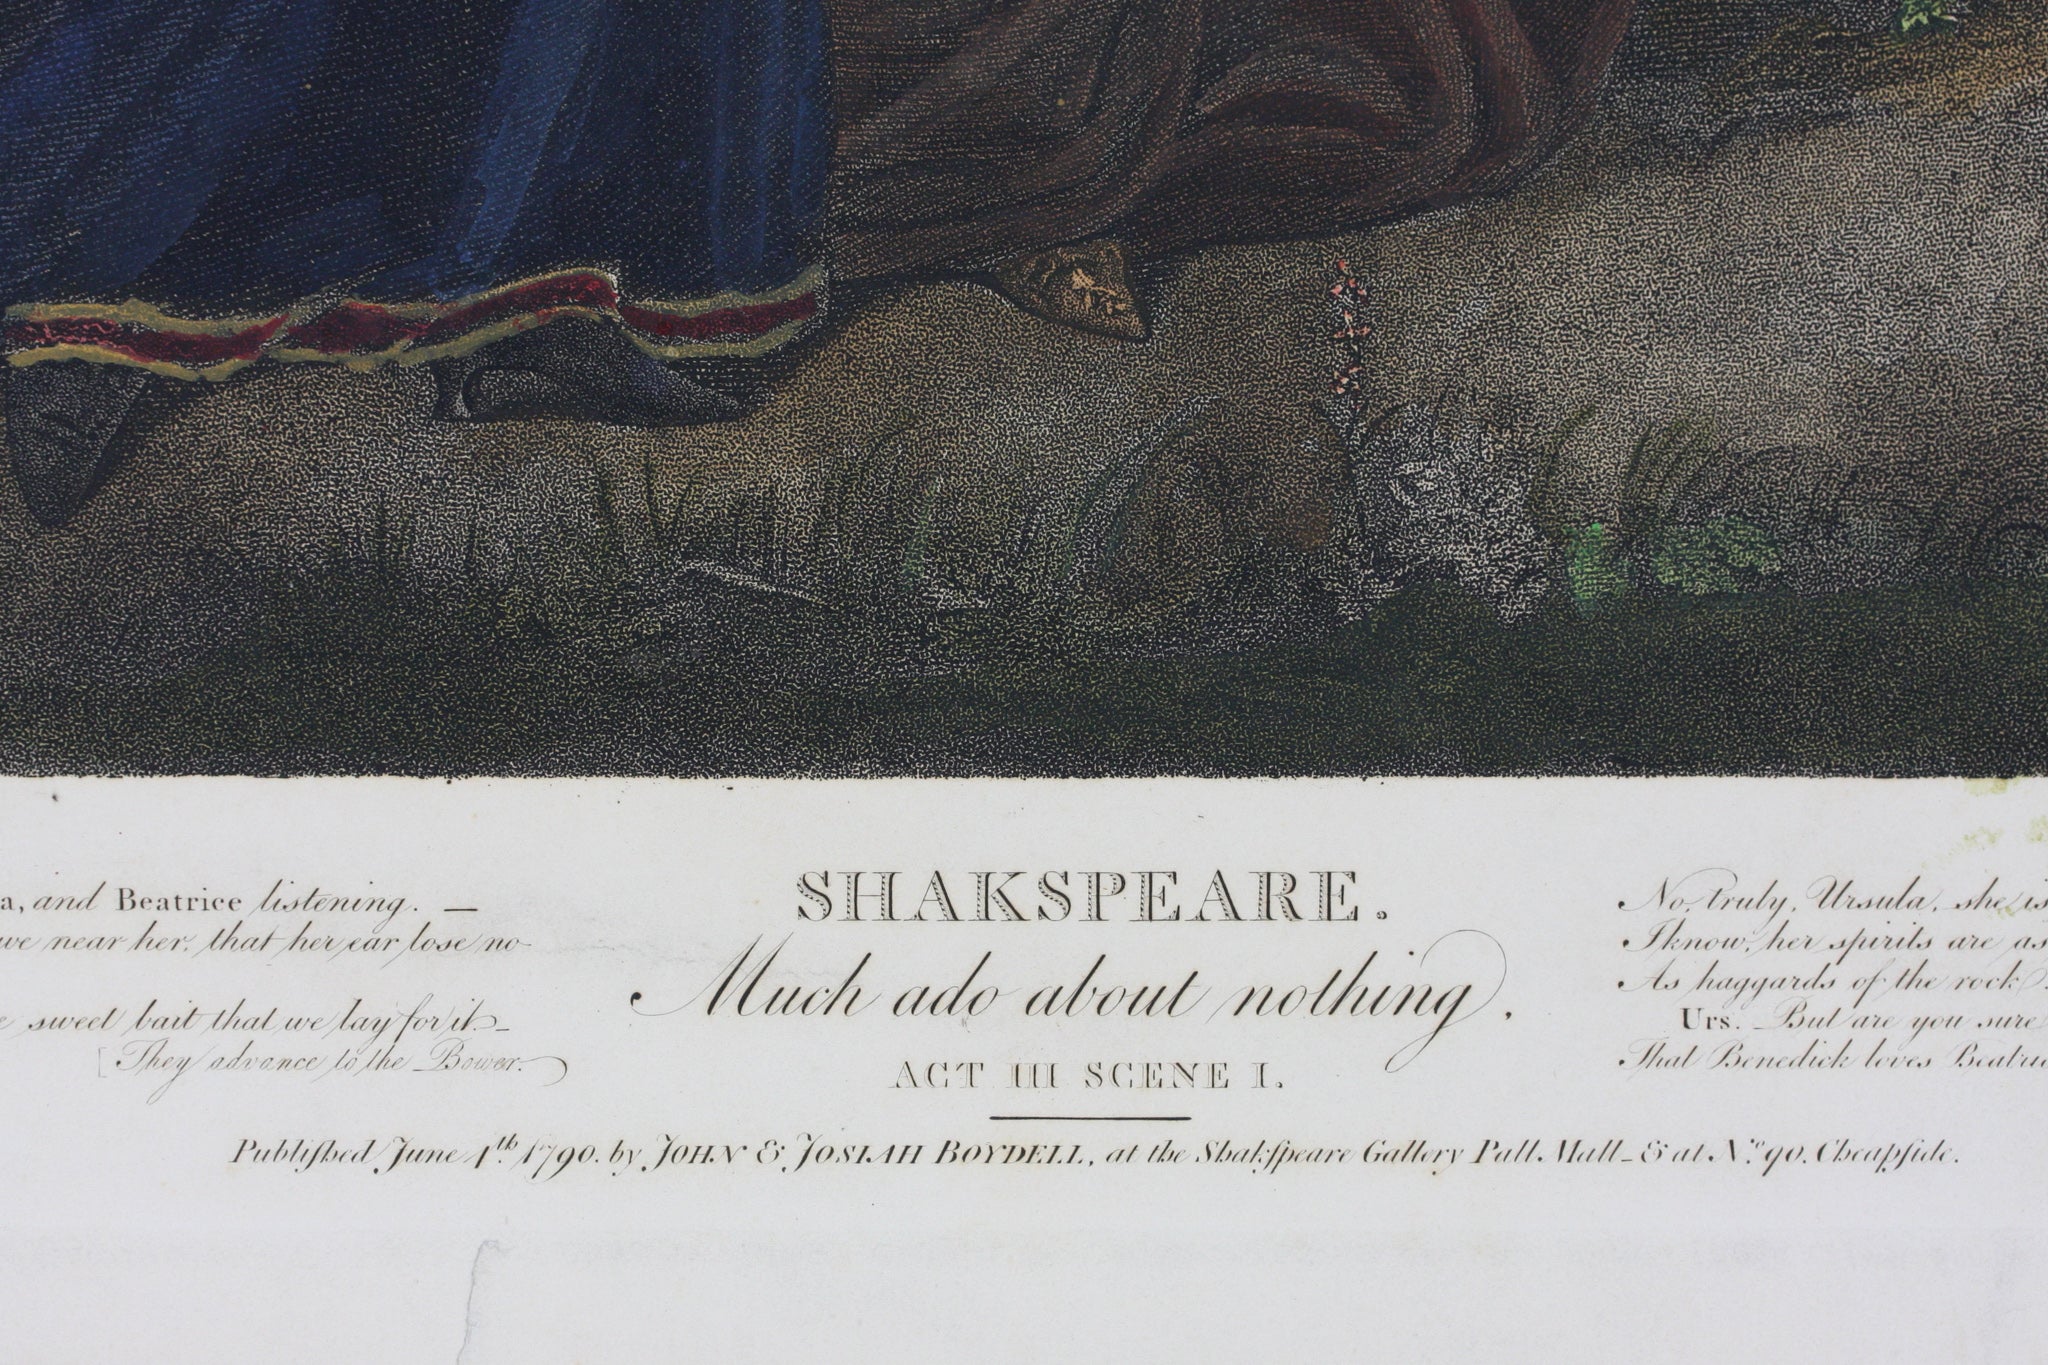 SHAKSPEARE.
Much ado about nothing,
ACT III SCENE I.
a, and Beatrice listening. —
we near her, that her ear lose no
sweet bait that we lay for it._
[They advance to the Bower.
No, truly, Ursula, she is
I know, her spirits are as
As haggards of the rock.
Urs. But are you sure
That Benedick loves
Publiſhed June 4th. 1790. by JOHN & JOSIAH BOYDELL, at the Shakſpeare Gallery Pall Mall_& at No. 90. Cheapſide.